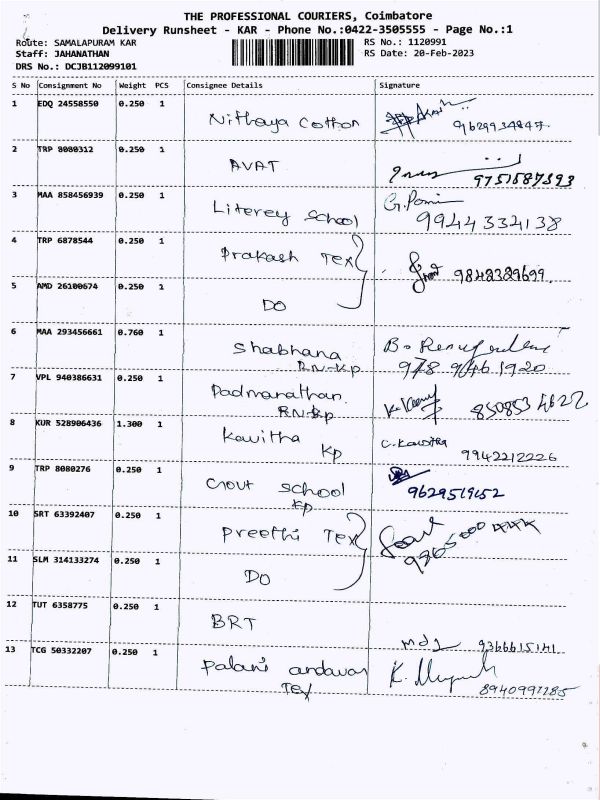 THE PROFESSIONAL COURIERS, Coimbatore
Delivery Runsheet - KAR - Phone No.:0422-3505555 - Page No.:1
Route: SAMALAPURAM KAR
RS No.: 1120991
Staff: JAHANATHAN
RS Date: 20-Feb-2023
DRS No.: DCJB112099101
S No Consignment No Weight PCS Consignee Details Signature
1 EDQ 24558550 0.250 1 Nithaya Cotton
9629934847
2 TRP 8080312 0.250 1 AVAT
9751687393
3 MAA 858456939 0.250 1 Literey school G. Poni
99444334138
4 TRP 6878544 0.250 1 Prakash Tex
9842389699
5 AMD 26100674 0.250 1 DO
6 MAA 293456661 0.760 1 Shabhana
RN-KP
978 9461920
7 VPL 940386631 0.250 1 Padmanathan
RN-KP
850853 4622
8 KUR 528906436 1.300 1 Kavitha
KP
C. Kavitha
9942212226
9 TRP 8080276 0.250 1 Govt school
KP
9629519152
10 SRT 63392407 0.250 1 Preethi Tex
11 SLM 314133274 0.250 1 DO
12 TUT 6358775 0.250 1 BRT
9366615141
13 TCG 50332207 0.250 1 Palani andavar
Tex
8940991285